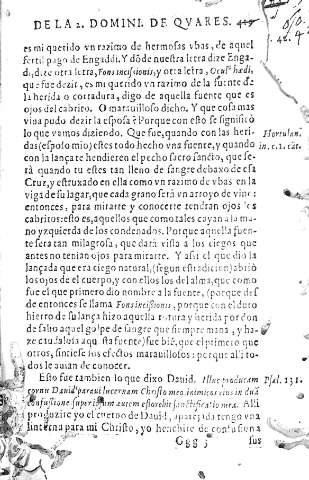 DE LA 2. DOMINI. DE QVARES.
es mi querido vn razimo de hermosas vbas, de aquel
fertil pago de Engaddi. Y dõde nuestra letra dize Enga-
di, dize otra letra, Fons incisionis, y otra letra, hædi,
que fue dezir, es mi querido vn razimo de la fuente de
la herida o cortadura, digo de aquella fuente que es
ojos del cabrito. O marauilloso dicho. Y que cosa mas
viua pudo dezir la esposa? Porque con esto se significò
lo que vamos diziendo. Que fue, quando con las heri-
das (esposo mio) estes todo hecho vna fuente, y quando
con la lançate hendieren el pecho sacrosancto, que se-
rà quando tu estes tan lleno de sangre debaxo de essa
Cruz, y estruxado en ella como vn razimo de vbas en la
viga de su lagar, que cada grano serà vn arroyo de vino:
entonces, para mirarte y conocerte tendran ojos los
cabritos: esto es, aquellos que como tales cayan a la ma-
no yzquierda de los condenados. Porque aquella fuen-
te sera tan milagrosa, que darà vista a los ciegos que
antes no tenian ojos para mirarte. Y assi el que dio la
lançada que era ciego natural, (segun es tradicion) abriò
los ojos de el cuerpo, y con ellos los del alma, que como
fue el que primero dio nombre a la fuente, (porque des
de entonces se llama Fons incisionis, porque con el duro
hierro de su lança hizo aquella rotura y herida por don
de salio aquel golpe de sangre que siempre mana, y ha-
ze caudalosa aquesta fuente) fue biẽ, que el primero que
otros, sintiese sus efectos marauillosos: porque assi to-
dos le auian de conocer.
Esto fue tambien lo que dixo Dauid. Illuc producam
cornu Dauid paraui lucernam Christo meo inimicos eius in duã
confusione super ipsum autem efflorebit sanctificatio mea. Alli
produzire yo el cuerno de Dauid, aparejada tengo vna
linterna para mi Christo, yo henchire de confusion a
Ggg 5 sus
Hortulan.
in. c. 1. cãt.
Psal. 131.